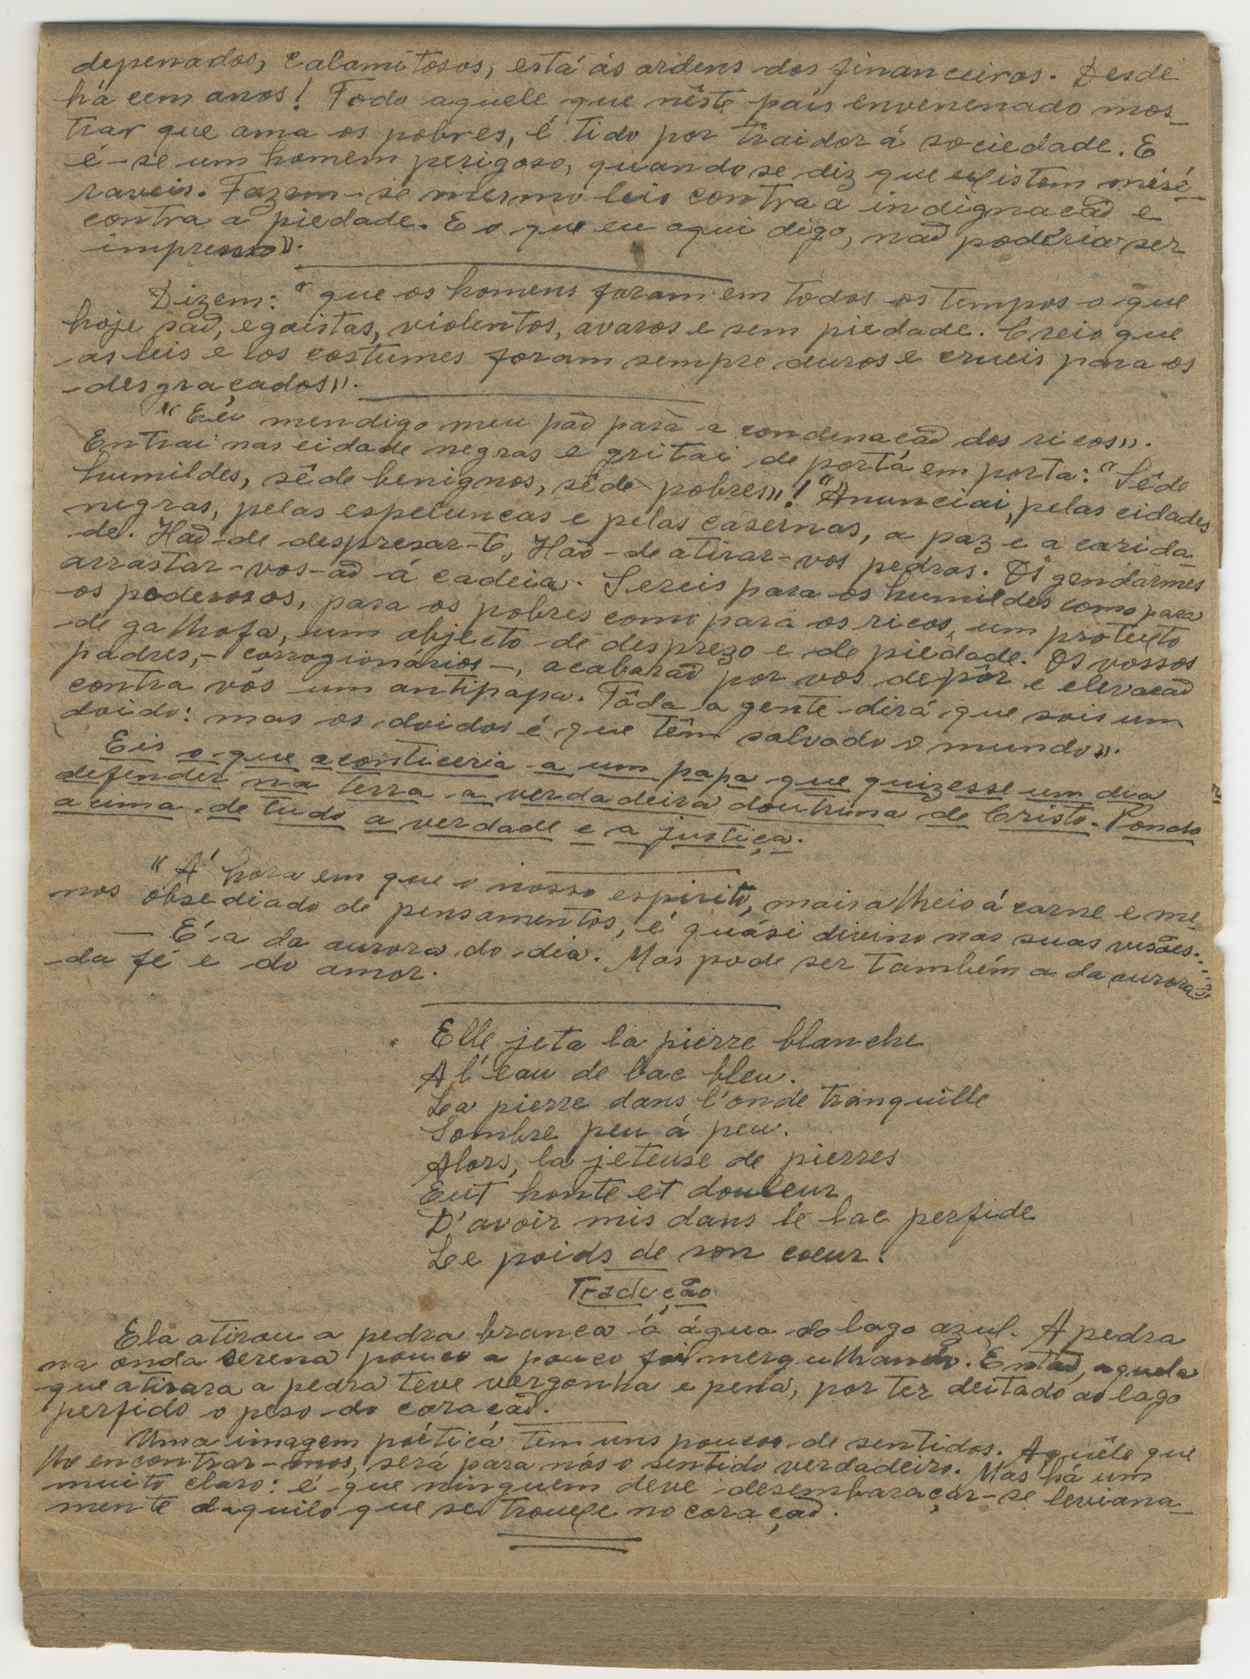 depenados, calamitosos, está ás ordens dos financeiros. Desde
há cem anos! Todo aquele que nêste país envenenado mos_
trar que ama os pobres, é tido por traidor á sociedade. E
é-se um homem perigoso, quando se diz que existem misé_
raveis. Fazem-se mesmo leis contra a indignacão e
contra a piedade. E o que eu aqui digo, não podéria ser
impresso».
Dizem: "que os homens foram em todos os tempos o que
hoje são, egoistas, violentos, avaros e sem piedade. Creio que
as leis e os costumes foram sempre duros e crueis para os
desgraçados».
"Eu mendigo meu pão para a condenacão dos ricos».
Entrai nas cidade negras e gritai de porta em porta: "Sêde
humildes, sêde benignos, sêde pobres»! "Anunciai, pelas cidades
negras, pelas espeluncas e pelas casernas, a paz e a carida_
de. Hão-de despresar-te, Hão-de atirar-vos pedras. Os gendarmes
arrastar-vos-ão á cadeia. Sereis para os humildes como para
os poderosos, para os pobres como para os ricos, um protexto
de galhofa, um objecto de desprezo e de piedade. Os vossos
padres,- corregionários-, acabarão por vos depôr e elevacão
contra vós um antipapa. Tôda a gente dirá que sois um
doido: mas os doidos é que têm salvado o mundo».
Eis o que aconticeria a um papa que quizesse um dia
defender na terra a verdadeira doutrina de Cristo. Pondo
acima de tudo a verdade e a justiça.
"A' hora em que o nosso espirito, mais alheio á carne e me_
nos obsediado de pensamentos, é quási divino nas suas visões...
— É a da aurora do dia. Mas pode ser também a da aurora
da fé e do amor.
Elle jeta la pierre blanche
A l'eau de lac bleu.
La pierre dans l'onde tranquille
Sombre peu á peu.
Alors, la jeteuse de pierres
Eut honte et douleur
D'avoir mis dans le lac perfide
Le poids de son coeur.
Tradução
Ela atirou a pedra branca á água do lago azul. A pedra
na onda serena pouco a pouco foi mergulhando. Então, aquela
que atirara a pedra teve vergonha e pena, por ter deitado ao lago
perfido o peso do coracão.
Uma imagem poética tem uns poucos de sentidos. Aquêle que
lhe encontrar-mos, será para nós o sentido verdadeiro. Mas há um
muito claro: é que ninguem deve desembaraçar-se leviana_
mente daquilo que se trouxe no coração.